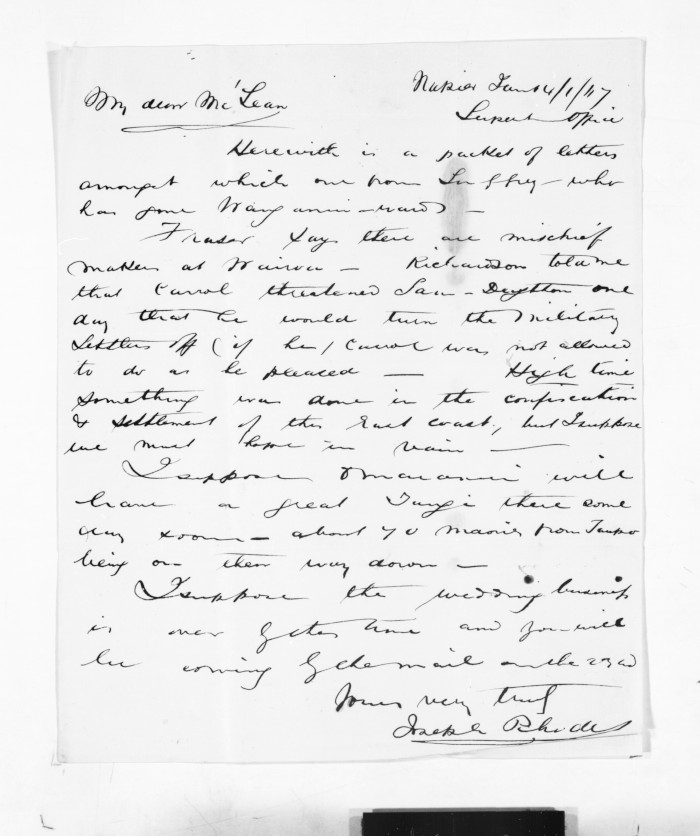 Napier Jan 14/1/67
My dear McLean
Supert Office
Herewith is a packet of letters
amongst which one from — who
has gone Wanganui-wards —
Fraser says there are mischief
makers at Wairoa — Richardson told me
that Carrol threatened Sam - Deighton one
day that he would turn the Military
Settlers off (if he) Carrol was not allowed
to do as he pleased — High time
something was done in the confiscation
& settlement of this East Coast, but I suppose
we must hope in vain —
I suppose will
have a great Tangi there some
day soon — about 70 maories from Taupo
being on their way down —
I suppose the wedding business
is over by this time and you will
be coming by the mail on the 23rd
Yours very truly
Joseph Rhodes